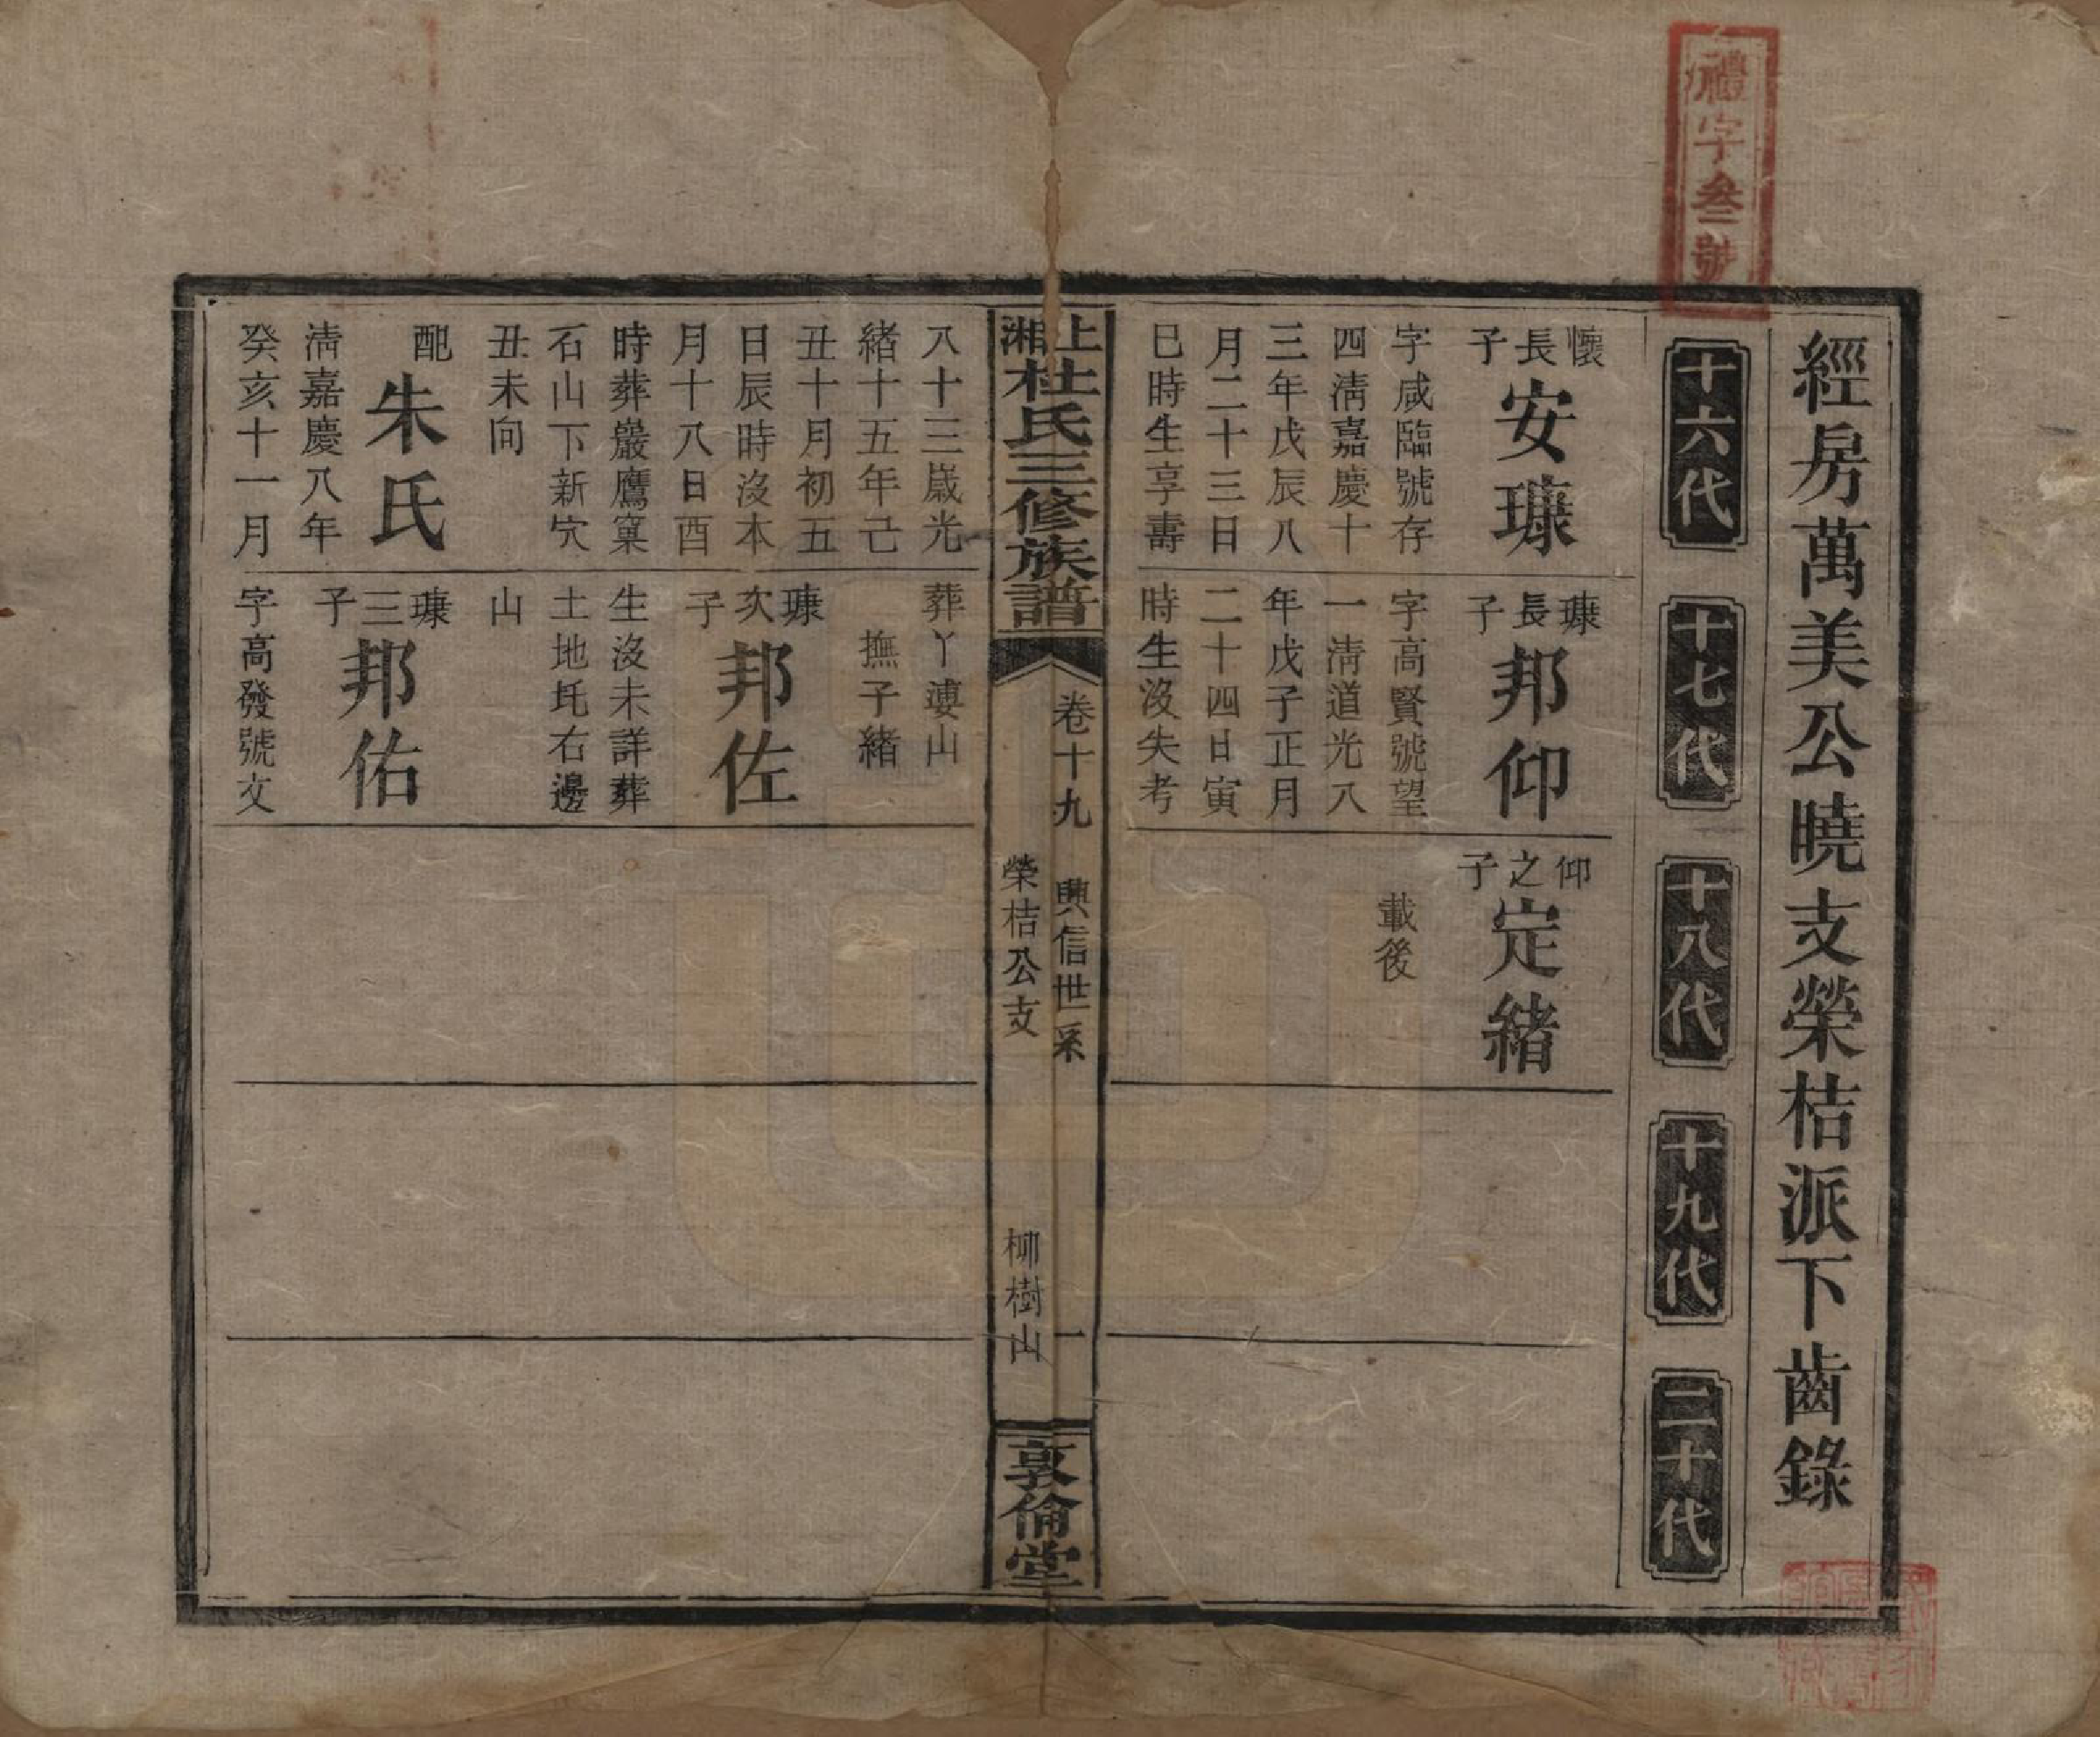 禮字叁號
經房萬美公曉支榮桔派下齒錄
十六代
十七代
十八代
十九代
二十代
懷長子安㻞
字咸臨號存
四淸嘉慶十
三年戊辰八
月二十三日
巳時生享壽
㻞長子邦仰
字高賢號望
一淸道光八
年戊子正月
二十四日寅
時生沒失考
仰之子定緒
載後
上湘杜氏三修族譜
卷十九 興信世系
榮桔公支
柳樹山
一
敦倫堂
八十三歲光
緖十五年己
丑十月初五
日辰時沒本
月十八日酉
時葬巖鷹窠
石山下新穴
丑未向
配朱氏
淸嘉慶八年
癸亥十一月
葬丫㙩山
撫子緖
㻞次子邦佐
生沒未詳葬
土地圫右邊
山
㻞三子邦佑
字高發號文